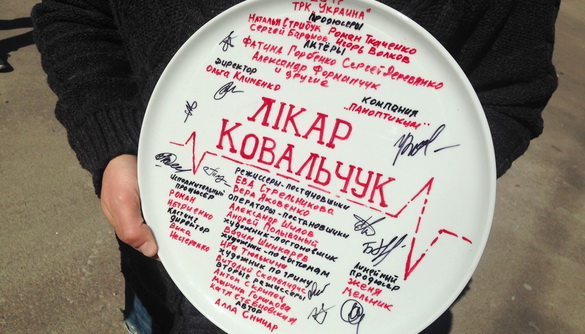 ТРК "УКРАИНА"
ПРОДЮСЕРЫ
Наталья Стрибук Роман Ткаченко
Сергей Баранов Игорь Волков
АКТЁРЫ
Фатима Горбенко Сергей Деревянко
Александр Форманчук
и другие
ДИРЕКТОР
Ольга Клименко
КОМПАНИЯ
"ПАНОПТИКУМ"
ЛІКАР
КОВАЛЬЧУК
РЕЖИССЕРЫ-ПОСТАНОВЩИКИ
ЕВА СТРЕЛЬНИКОВА
ВЕРА ЯКОВЕНКО
ОПЕРАТОРЫ-ПОСТАНОВЩИКИ
Александр Шилов
Андрей Полываный
Вадим Шинкарёв
ХУДОЖНИК ПО КОСТЮМАМ
ХУДОЖНИК ПО ГРИМУ
ВТОРЫЕ РЕЖИССЕРЫ
АВТОР
АЛЛА СНИЦАР
ИСПОЛНИТЕЛЬНЫЙ
ПРОДЮСЕР
РОМАН
КАСТИНГ
ДИРЕКТОР
ВИКА
Нестеренко
ЛИНЕЙНЫЙ
ПРОДЮСЕР
ЖЕНЯ
МЕЛЬНИК